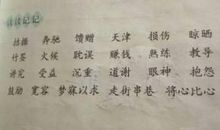 读读记记
拮据 奔驰 馈赠 天津 损伤 晾晒
竹签 火候 耽误 赚钱 熟练 教导
讲究 受益 沉重 道谢 眼神 抱怨
鼓励 宽容 梦寐以求 走街串巷 将心比心